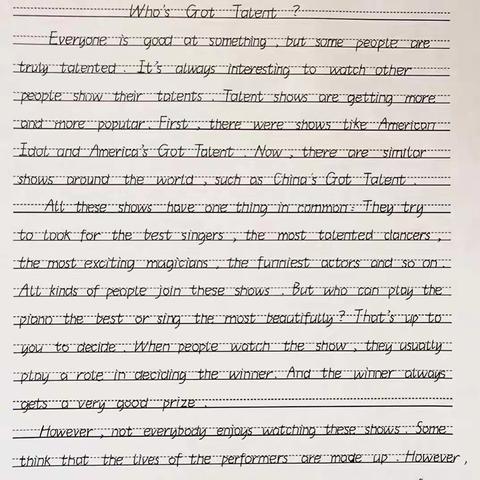 Who's Got Talent ?
Everyone is good at something , but some people are
truly talented . It's always interesting to watch other
people show their talents . Talent shows are getting more
and more popular . First , there were shows like American
Idol and America's Got Talent . Now , there are similar
shows around the world , such as China's Got Talent .
All these shows have one thing in common : They try
to look for the best singers , the most talented dancers ,
the most exciting magicians , the funniest actors and so on .
All kinds of people join these shows . But who can play the
piano the best or sing the most beautifully ? That's up to
you to decide . When people watch the show , they usually
play a role in deciding the winner . And the winner always
gets a very good prize .
However , not everybody enjoys watching these shows . Some
think that the lives of the performers are made up . However ,